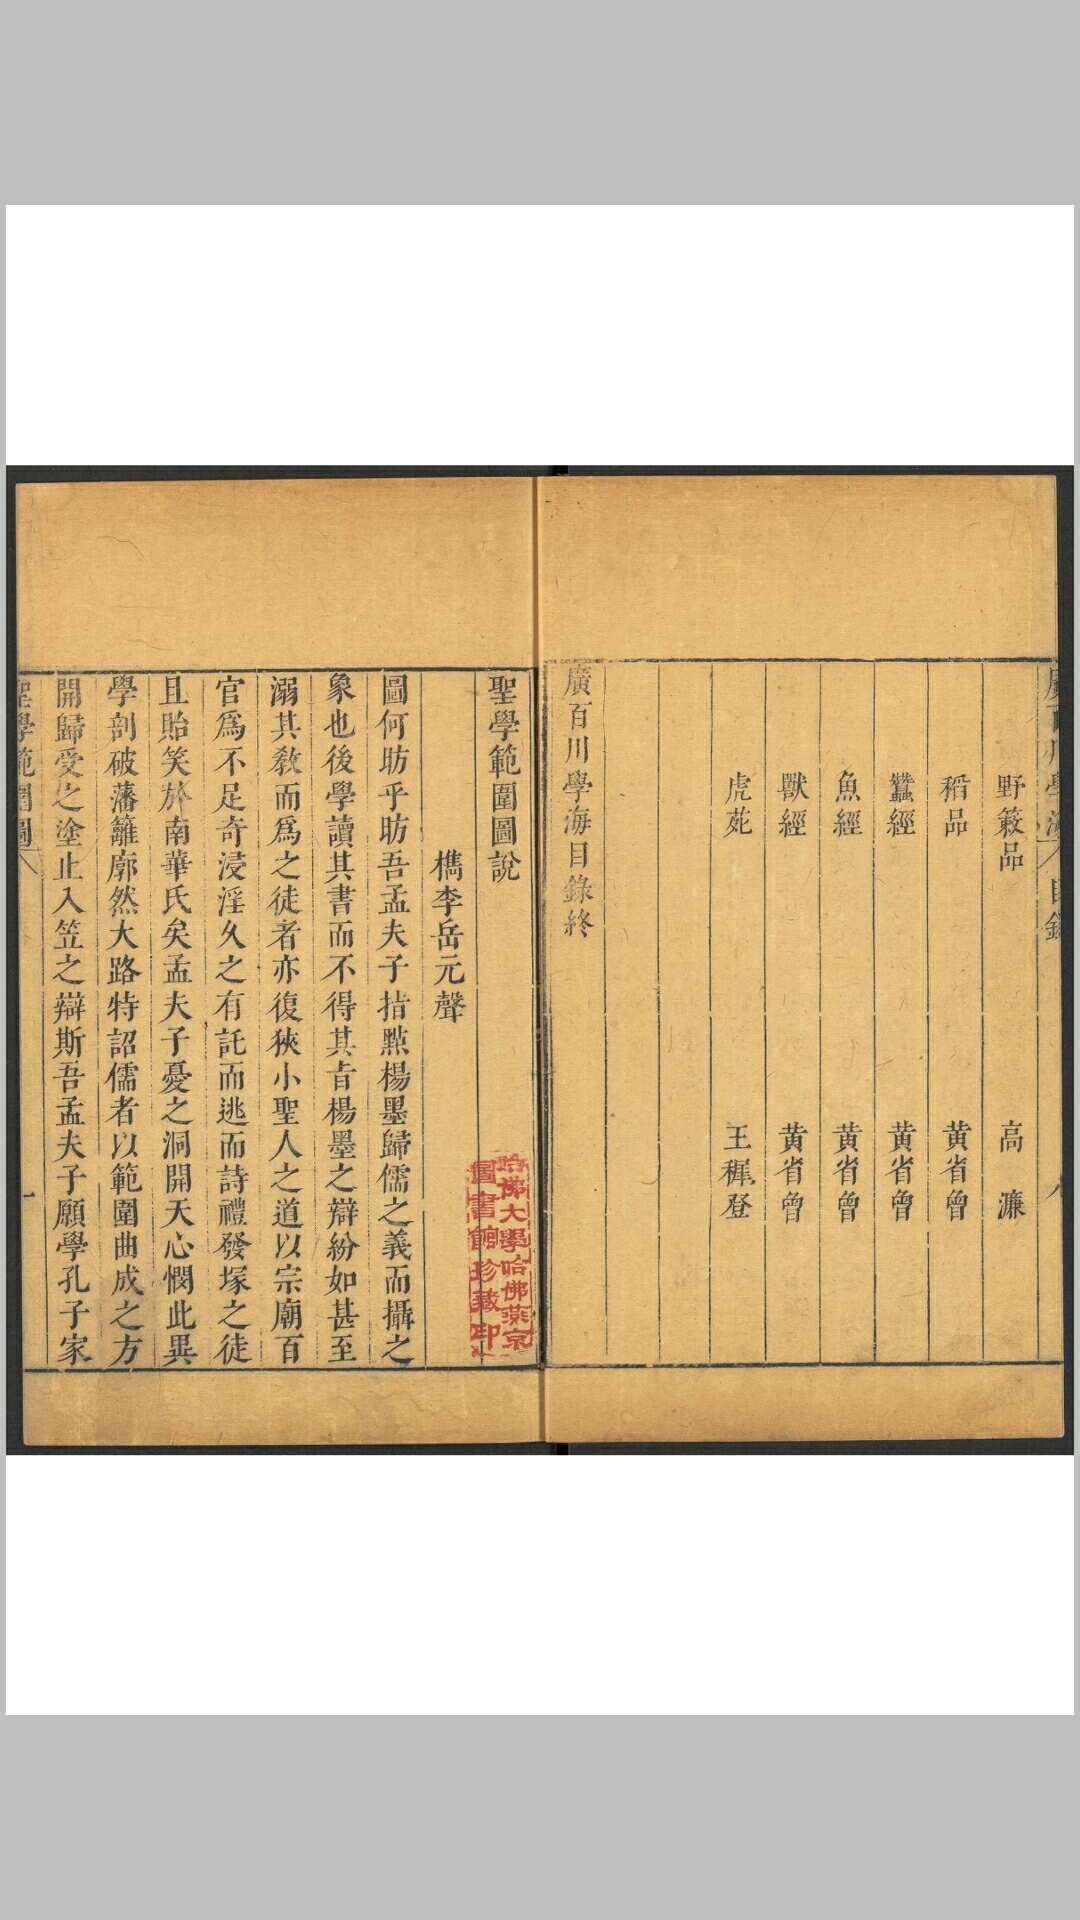 廣百川學海 目錄 八
野蔌品 高濂
稻品 黃省曾
蠶經 黃省曾
魚經 黃省曾
獸經 黃省曾
虎苑 王穉登
廣百川學海目錄終
聖學範圍圖說
檇李岳元聲
圖何昉乎昉吾孟夫子指點楊墨歸儒之義而攝之
象也後學讀其書而不得其旨楊墨之辯紛如甚至
溺其教而爲之徒者亦復狹小聖人之道以宗廟百
官爲不足奇浸淫久之有託而逃而詩禮發塚之徒
且貽笑於南華氏矣孟夫子憂之洞開天心憫此異
學剖破藩籬廓然大路特詔儒者以範圍曲成之方
開歸受之塗止入笠之辯斯吾孟夫子願學孔子家
聖學範圍圖 一
哈佛大學哈佛燕京
圖書館珍藏印